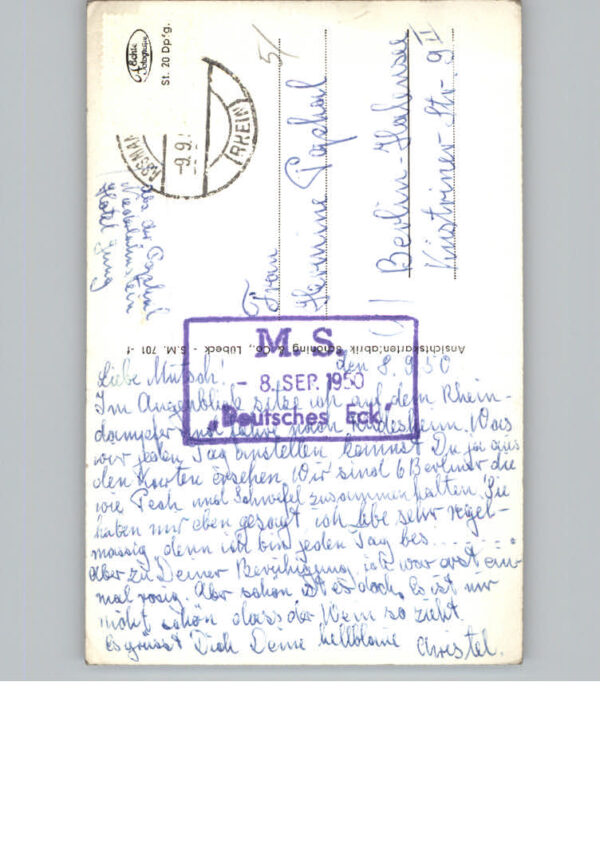 Echte Fotografie
St. 20 Dpfg.
-9.9.
(RHEIN)
5/
Abs. Chr. Paphal
Niederheimbach
Hotel Jung
Frau
Hermine Paphal
Berlin-Halensee
Küstriner Str. 9 II
Ansichtskartenfabrik Schöning & Co., Lübeck - S.M. 701 -f
M. S.
- 8. SEP. 1950
„Deutsches Eck"
den 8.9.50
Liebe Mutsch!
Im Augenblick sitze ich auf dem Rhein-
dampfer und fahre nach Rüdesheim. Was
wir jeden Tag anstellen kannst Du ja aus
den Karten ersehen. Wir sind 6 Berliner die
wie Pech und Schwefel zusammenhalten. Sie
haben mir eben gesagt ich lebe sehr regel-
mässig denn ich bin jeden Tag bes........
Aber zu Deiner Beruhigung, ich war erst ein-
mal rosig. Aber schön ist es doch. Es ist nur
nicht schön dass der Wein so zieht.
Es grüsst Dich Deine hellblaue Christel.